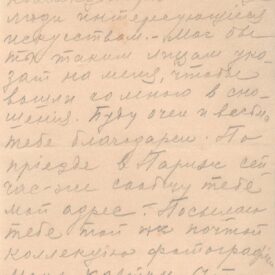 люди интересующіеся
искусствомъ. Мог бы
ты таким лицам ука-
зат на меня, чтобы
вошли со мною в сно-
шения. Буду очен
тебе благодарен. По
пріезде в Париж сей
час-же сообщу тебе
мой адрес. Посылаю
тебе той же почтой
коллекцію фотографі